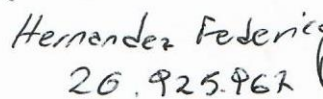 Hernandez Federico
26.925.967